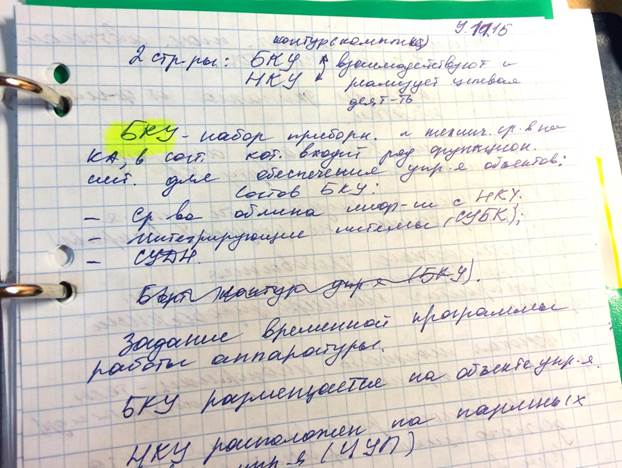 9.11.15
контурs компл
2 стр-ры: БКУ взаимодействуют и
НКУ реализует целевая
деят-ть
БКУ - набор приборн. и технич. ср-в на
КА, в сост. кот. входит ряд функцион.
сист. для обеспечения упр-я объектов:
Состав БКУ:
- Ср-ва обмена инф-ии с НКУ.
- интегрирующие системы (СУБК);
- СУДН.
Задание временной программы
работы аппаратуры.
БКУ размещается на объекте упр-я.
НКУ расположен на наземных
упр-я (ЦУП)